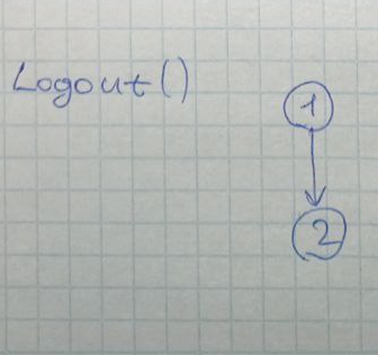 Logout()
1
2